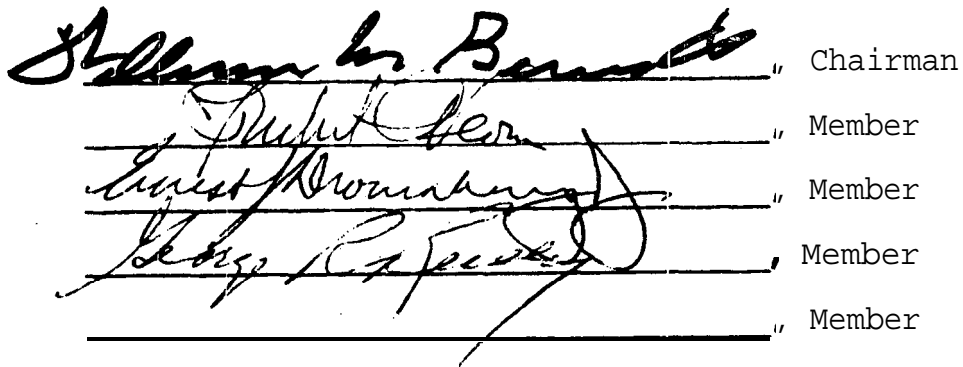 William M. Bennett, Chairman
, Member
Ernest J. Dronenburg, Jr., Member
George R. Reilly, Member
, Member